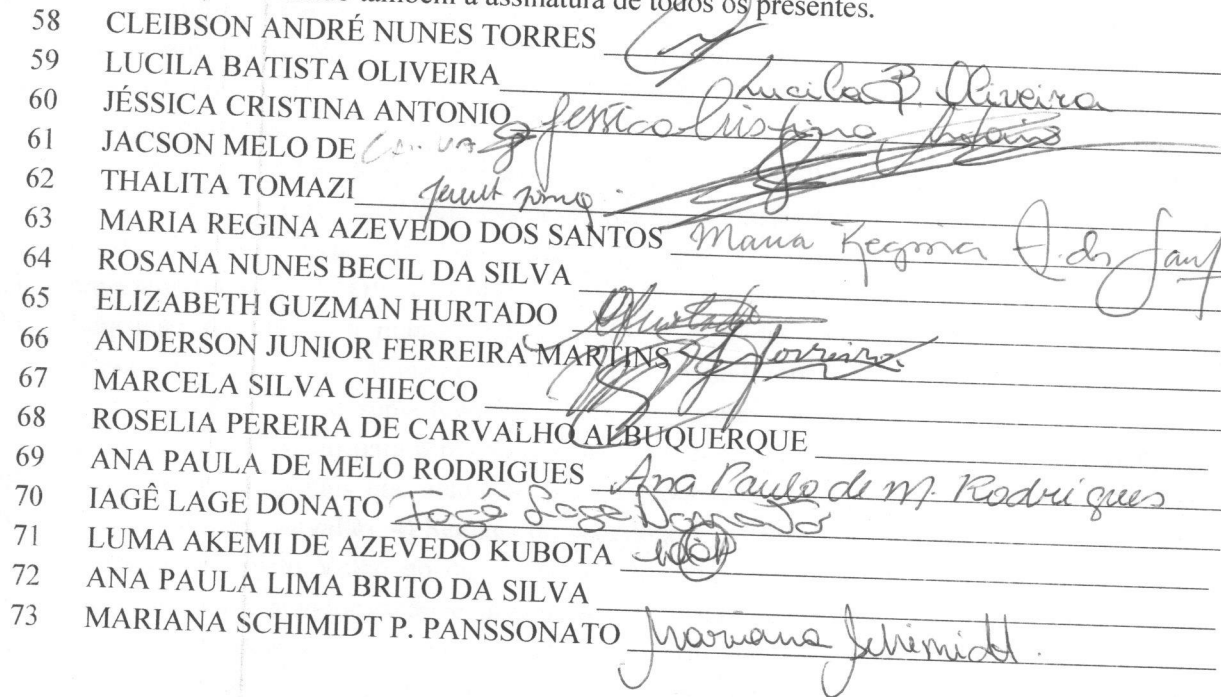 também a assinatura de todos os presentes.
58 CLEIBSON ANDRÉ NUNES TORRES
59 LUCILA BATISTA OLIVEIRA Lucila B. Oliveira
60 JÉSSICA CRISTINA ANTONIO Jessica Cristina Antonio
61 JACSON MELO DE
62 THALITA TOMAZI
63 MARIA REGINA AZEVEDO DOS SANTOS Maria Regina A. dos Sant
64 ROSANA NUNES BECIL DA SILVA
65 ELIZABETH GUZMAN HURTADO
66 ANDERSON JUNIOR FERREIRA MARTINS Ferreira
67 MARCELA SILVA CHIECCO
68 ROSELIA PEREIRA DE CARVALHO ALBUQUERQUE
69 ANA PAULA DE MELO RODRIGUES Ana Paula de M. Rodrigues
70 IAGÊ LAGE DONATO Iagê Lage Donato
71 LUMA AKEMI DE AZEVEDO KUBOTA
72 ANA PAULA LIMA BRITO DA SILVA
73 MARIANA SCHIMIDT P. PANSSONATO Mariana Schimidt.